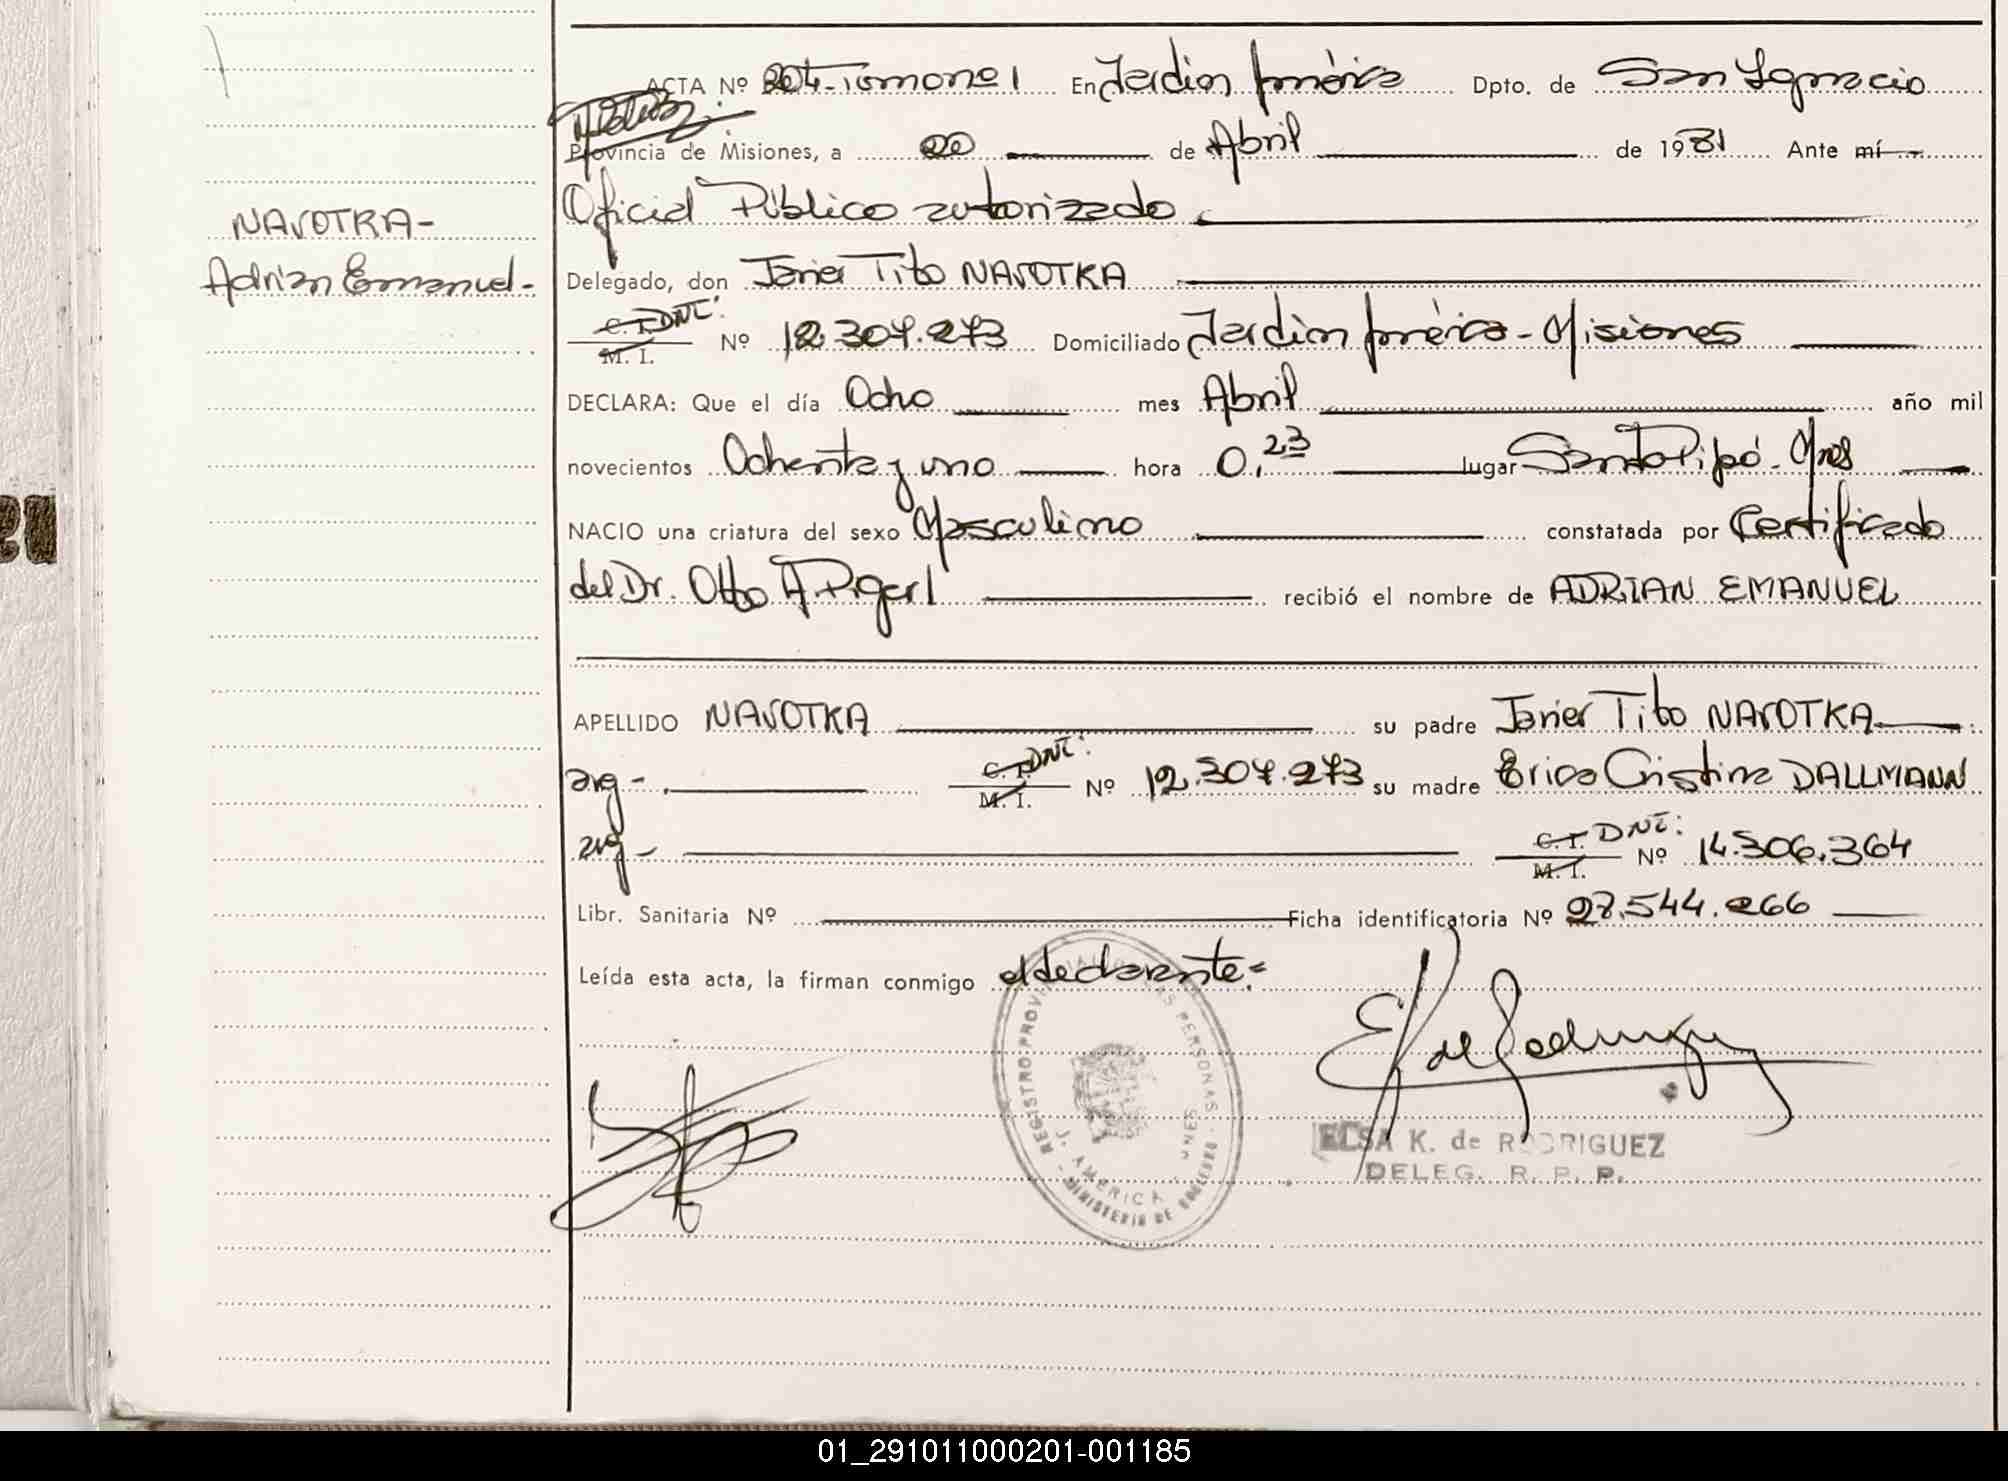 ACTA Nº 204-Tomo nº 1 En Jardin América Dpto. de San Ignacio
Provincia de Misiones, a 20 de Abril de 1981 Ante mí
Oficial Público autorizado
NAVOTKA-
Adrian Emanuel-
Delegado, don Javier Tito NAVOTKA
C.I. DNI: M. I. Nº 12.307.273 Domiciliado Jardin América - Misiones
DECLARA: Que el día Ocho mes Abril año mil
novecientos Ochenta y uno hora 0,23 lugar Santo Pipó - Mnes
NACIO una criatura del sexo Masculino constatada por Certificado
del Dr. Otto A. Pigerl recibió el nombre de ADRIAN EMANUEL
APELLIDO NAVOTKA su padre Javier Tito NAVOTKA
arg - C.I. DNI: M. I. Nº 12.307.273 su madre Erica Cristina DALLMANN
arg - C.I. DNI: M. I. Nº 14.306.364
Libr. Sanitaria Nº Ficha identificatoria Nº 27.544.266
Leída esta acta, la firman conmigo el declarante=
REGISTRO PROVINCIAL DE LAS PERSONAS
J. AMERICA
MINISTERIO DE GOBIERNO
ELSA K. de RODRIGUEZ
DELEG. R. P. P.
01_291011000201-001185